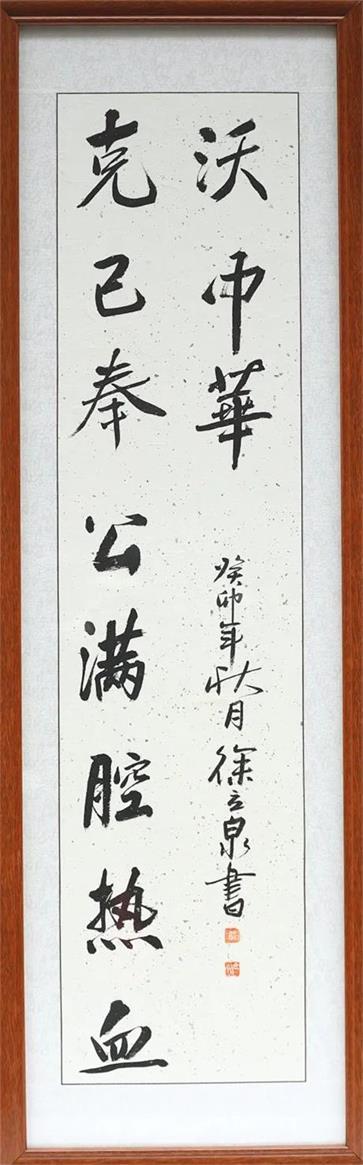 克己奉公满腔热血
沃中華
癸卯年秋月徐立泉書